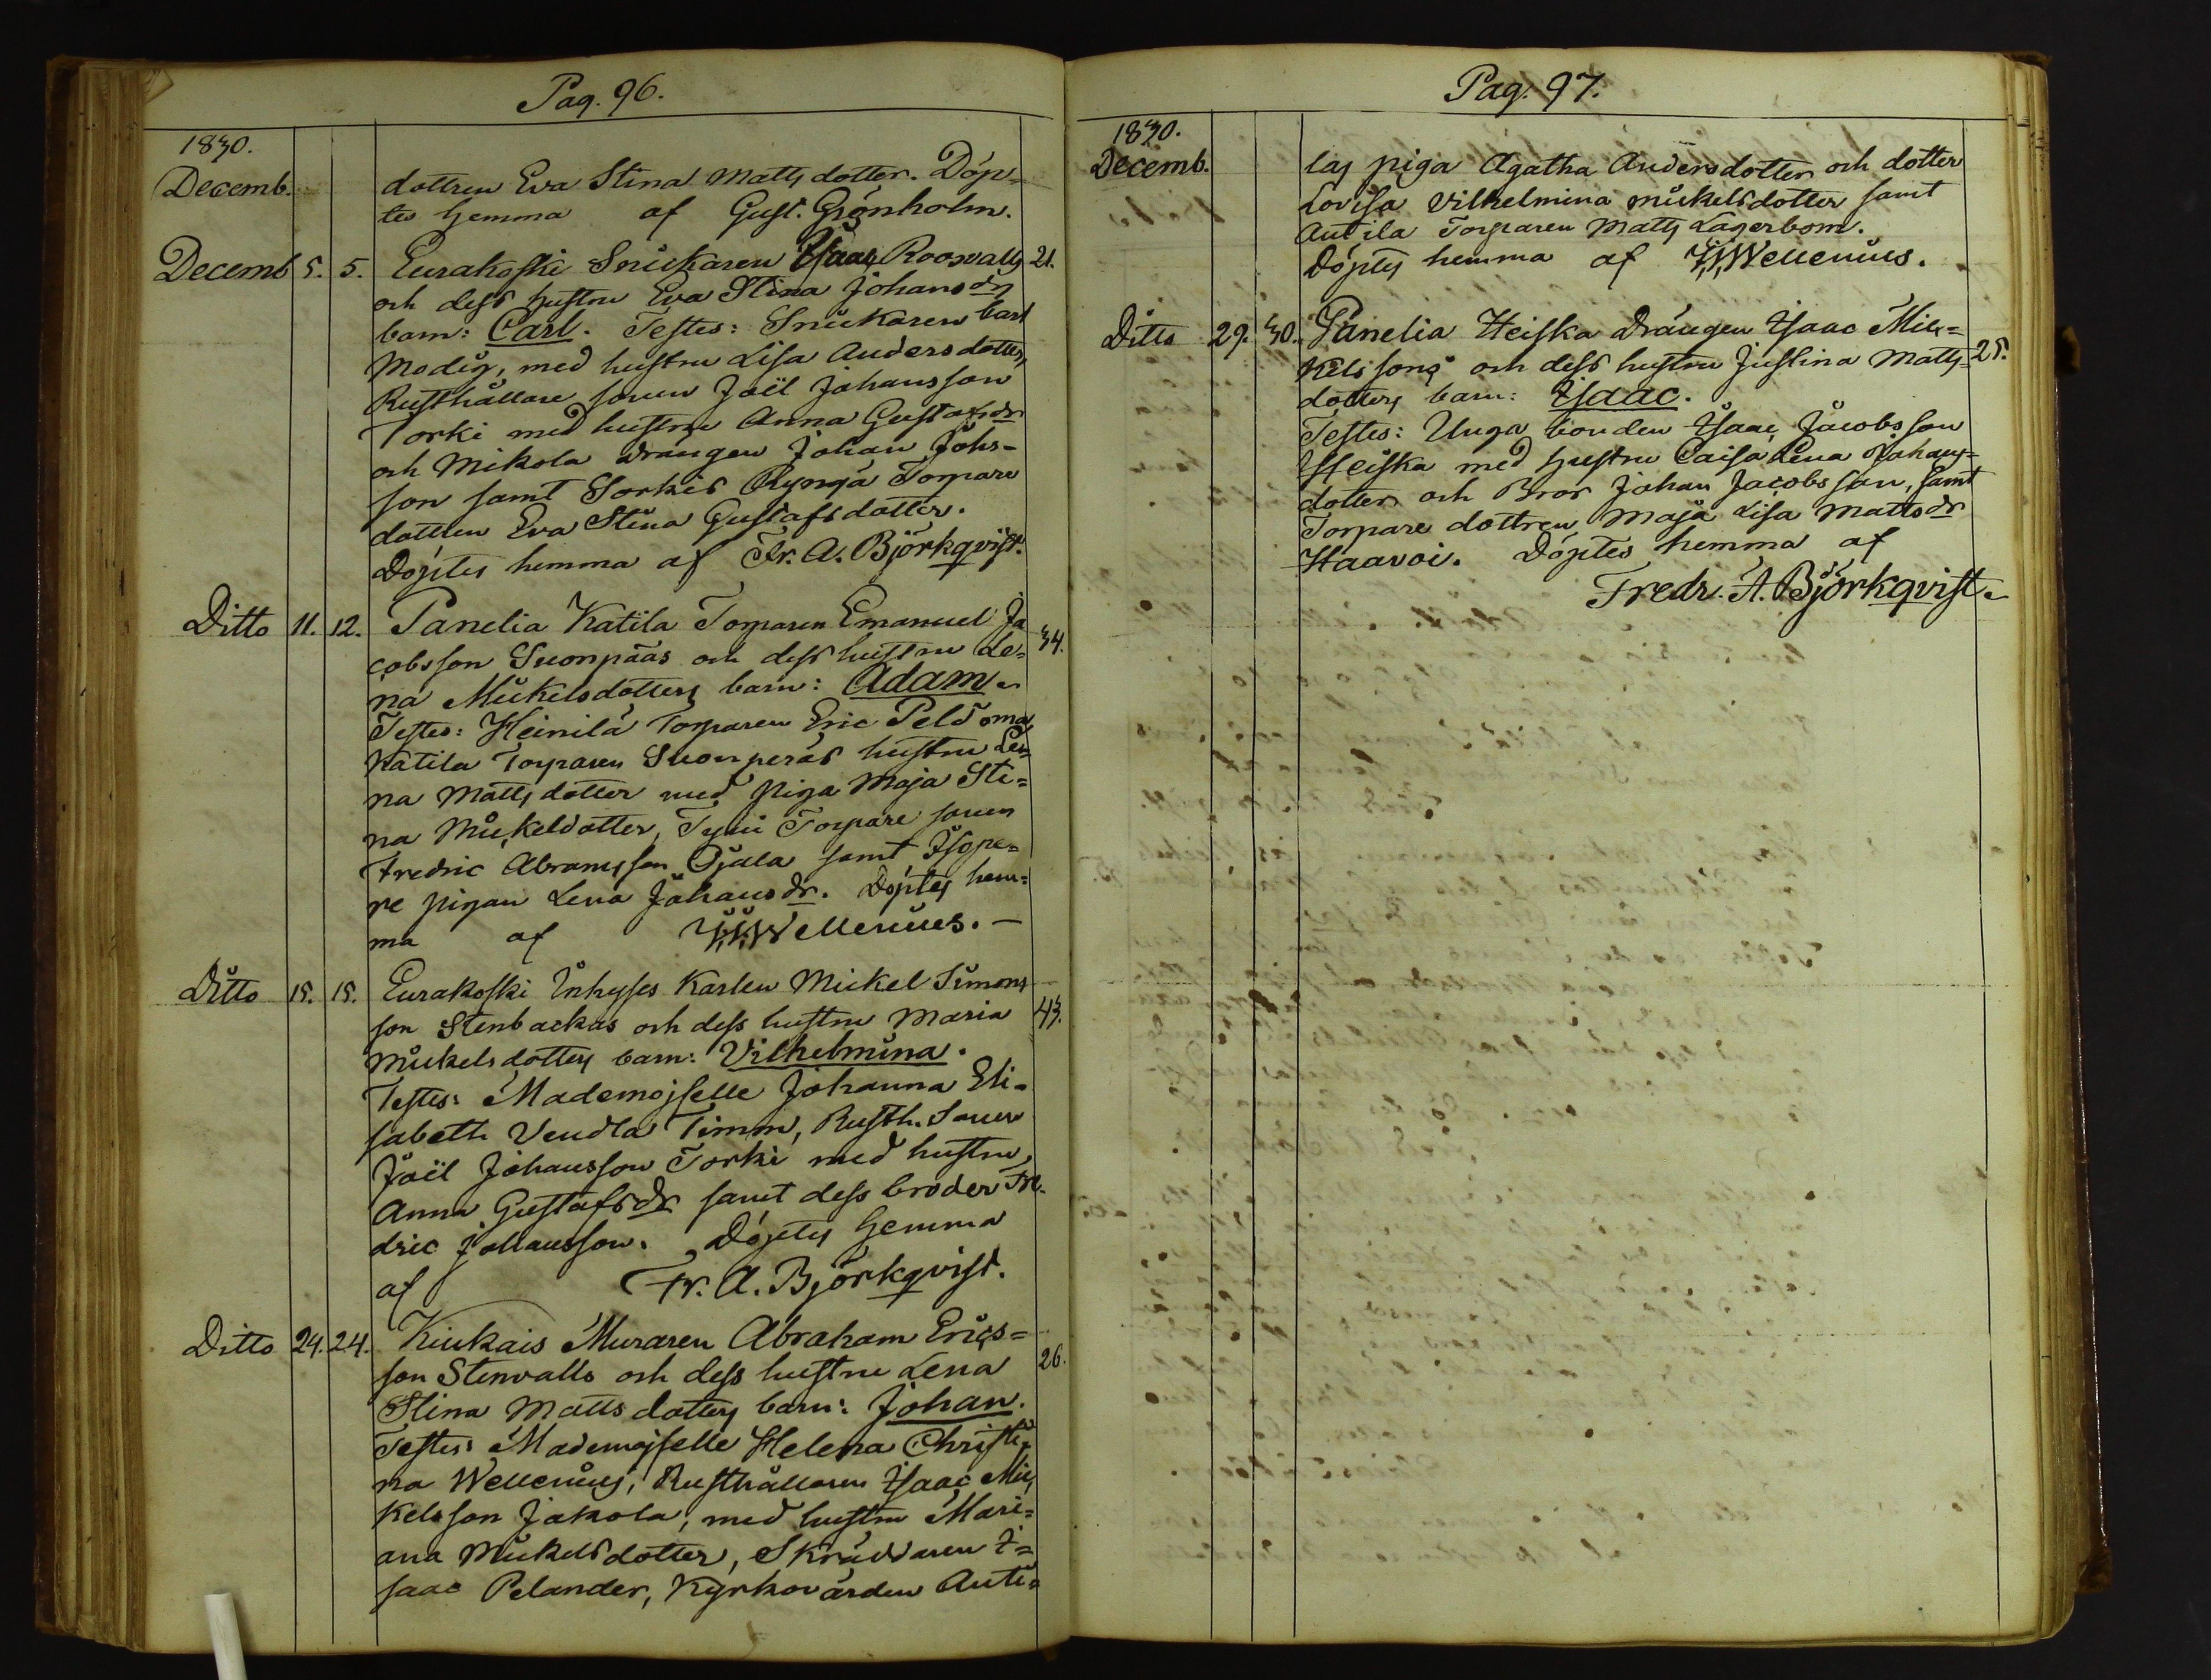 Pag. 96.
1830.
Decemb. dottren Eva Stina Matts dotter. Döp-
tes hemma af Gust. Grönholm.
Decemb 5. 5. Eurakoski Snickaren Isaac Roosvalls 21.
och dess hustru Eva Stina Johansdrs
barn: Carl. Testes: Snickaren Carl
Modig, med hustru Lisa Anders dotter,
Rusthållare sonen Joël Johansson
Torki med hustru Anna Gustafsdr
och Mikola drängen Johan Johs-
son samt Sorkis Rynga Torpare
dottren Eva Stina Gustafsdotter.
Döptes hemma af Fr. A. Björkqvist.
Ditto 11. 12. Panelia Katila Torparen Emanuel Ja
cobsson Suonpääs och dess hustru Le- 34.
na Mickelsdotters barn: Adam.
Testes: Heinilä Torparen Eric Peldoma
Katila Torparen Suonperäs hustru Le-
na Matts dotter med piga Maja Sti-
na Mickeldotter, Tyni Torpare sonen
Fredric Abramsson Ojala samt Isope-
re pigan Lena Johansdr. Döptes hem-
ma af Wellenius. —
Ditto 15. 15. Eurakoski Inhyses Karlen Mickel Simons
son Stenbackas och dess hustru Maria 43.
Mickelsdotters barn: Vilhelmina.
Testes: Mademoiselle Johanna Eli-
sabeth Vendla Timm, Rusth. Sonen
Joël Johansson Torki med hustru
Anna Gustafsdr samt dess broder Fre-
dric Johansson. Döptes hemma
af Fr. A. Björkqvist.
Ditto 24. 24. Kiukais Muraren Abraham Erics-
son Stenvalls och dess hustru Lena 26.
Stina Matts dotters barn: Johan.
Testes: Mademoiselle Helena Christi-
na Wellenius, Rusthållaren Isaac Mic-
kelsson Jakola, med hustru Mari-
ana Mickelsdotter, Skräddaren I-
saac Pelander, Kyrkovärden Anti-
Pag. 97.
1830.
Decemb. las piga Agatha Andersdotter och dotter
Lovisa Vilhelmina Mickelsdotter samt
Antila Torparen Matts Lagerbom.
Döptes hemma af Wellenius.
Ditto 29. 30. Panelia Heiska Drängen Isaac Mic-
kelssons och dess hustru Justina Matts- 25.
dotters barn: Isaac.
Testes: Unga bonden Isaac Jacobsson
Heiska med hustru Caisa Lena Johans-
dotter och Bror Johan Jacobsson, samt
Torpare dottren Maja Lisa Mattsdr
Haavoi. Döptes hemma af
Fredr. A. Björkqvist.